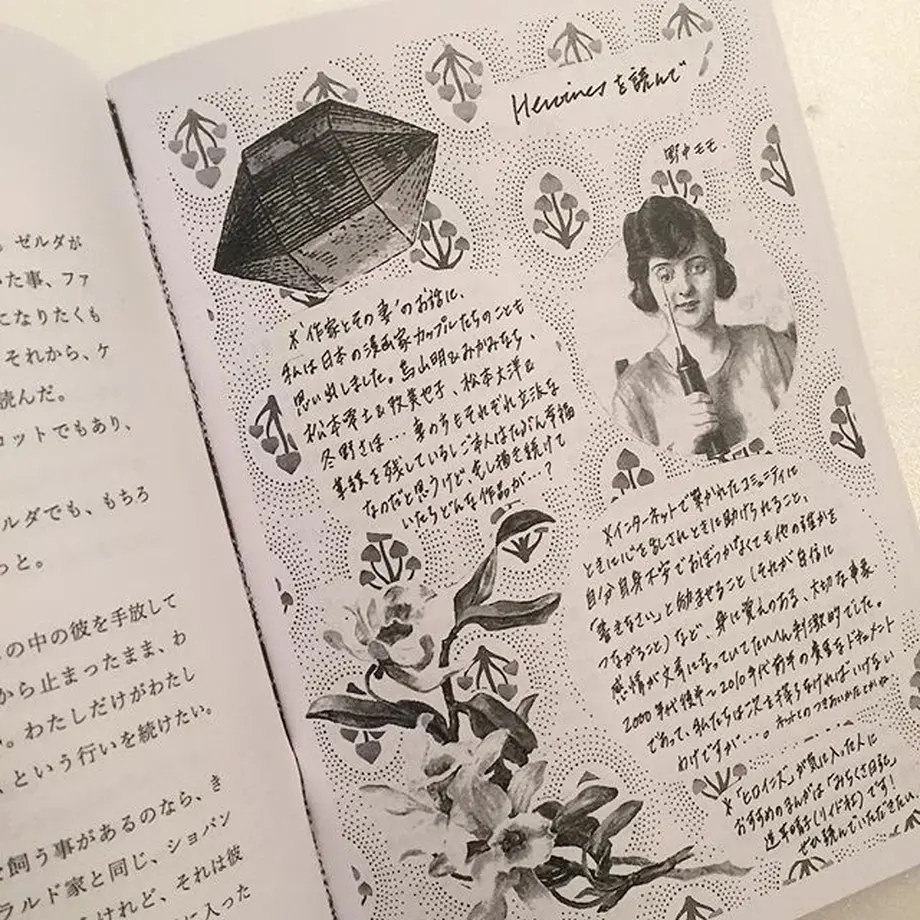 。ゼルダが
った事、ファ
になりたくも
それから、ケ
読んだ。
コットでもあり、
ルダでも、もちろ
っと。
の中の彼を手放して
から止まったまま、わ
い。わたしだけがわたし
、という行いを続けたい。
を飼う事があるのなら、き
ラルド家と同じ、ショパン
けれど、それは彼
に入った
Heroinesを読んで
野中モモ
※"作家とその妻"のお話に、
私は日本の漫画家カップルたちのことも
思い出しました。鳥山明&みかみなち、
松本零士&牧美也子、松本大洋&
冬野さほ…妻の方もそれぞれ立派な
業績を残しているしご本人はたぶん幸福
なのだと思うけど、もし描き続けて
いたらどんな作品が…?
※インターネットで築かれたコミュニティに
ときに心を乱されときに助けられること、
自分自身不安でおぼつかなくても他の誰かを
「書きなさい」と励ませること(それが自信に
つながること)など、身に覚えのある、大切な事象・
感情が文章になっていてたいへん刺激的でした。
2000年代後半〜2010年代前半の貴重なドキュメント
であって、私たちは次を探らなければいけない
わけですが…。ネットとのつきあいかたとかね。
※「ヒロインズ」が気に入った人に
おすすめのまんがは「みちくさ日記」
道草晴子(リイド社)です!
ぜひ読んでいただきたい。